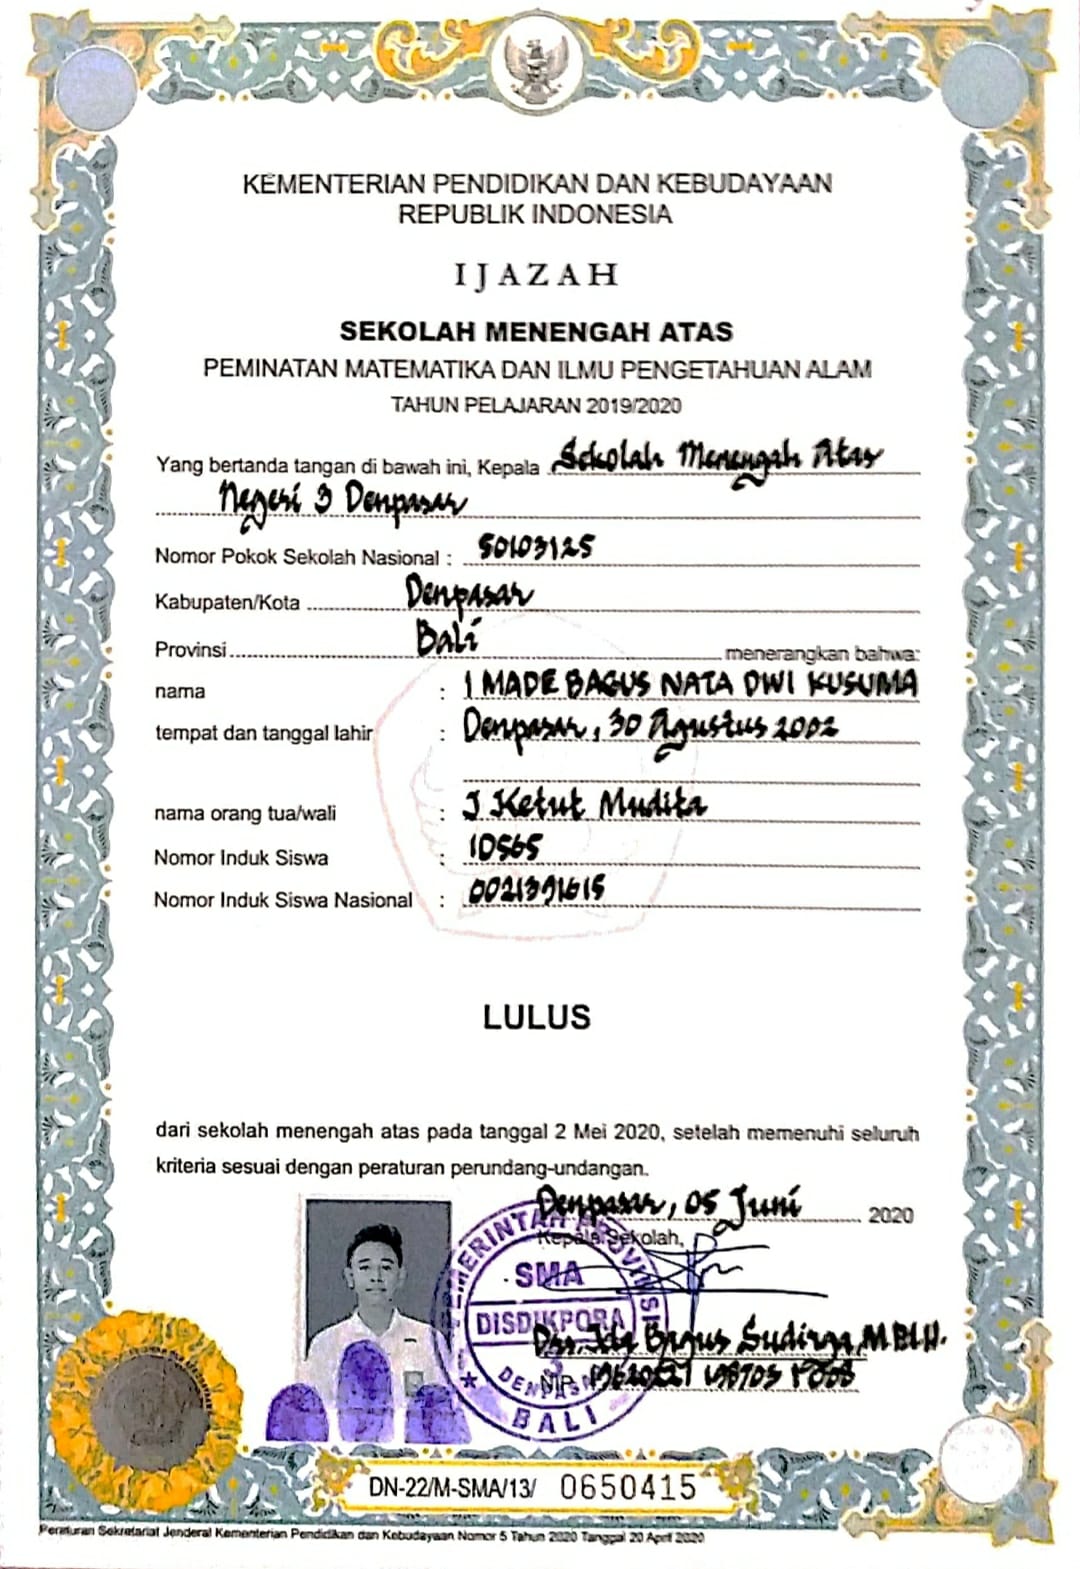 KEMENTERIAN PENDIDIKAN DAN KEBUDAYAAN
REPUBLIK INDONESIA
IJAZAH
SEKOLAH MENENGAH ATAS
PEMINATAN MATEMATIKA DAN ILMU PENGETAHUAN ALAM
TAHUN PELAJARAN 2019/2020
Yang bertanda tangan di bawah ini, Kepala Sekolah Menengah Atas
Negeri 3 Denpasar
Nomor Pokok Sekolah Nasional : 50103125
Kabupaten/Kota Denpasar
Provinsi Bali menerangkan bahwa:
nama : I MADE BAGUS NATA DWI KUSUMA
tempat dan tanggal lahir : Denpasar, 30 Agustus 2002
nama orang tua/wali : I Ketut Mudita
Nomor Induk Siswa : 10565
Nomor Induk Siswa Nasional : 0021391615
LULUS
dari sekolah menengah atas pada tanggal 2 Mei 2020, setelah memenuhi seluruh
kriteria sesuai dengan peraturan perundang-undangan.
Denpasar, 05 Juni 2020
Kepala Sekolah,
PEMERINTAH PROVINSI
SMA
DISDIKPORA
DENPASAR
BALI
Drs. Ida Bagus Sudirga, M.Pd.H.
NIP.
DN-22/M-SMA/13/ 0650415
Peraturan Sekretariat Jenderal Kementerian Pendidikan dan Kebudayaan Nomor 5 Tahun 2020 Tanggal 20 April 2020